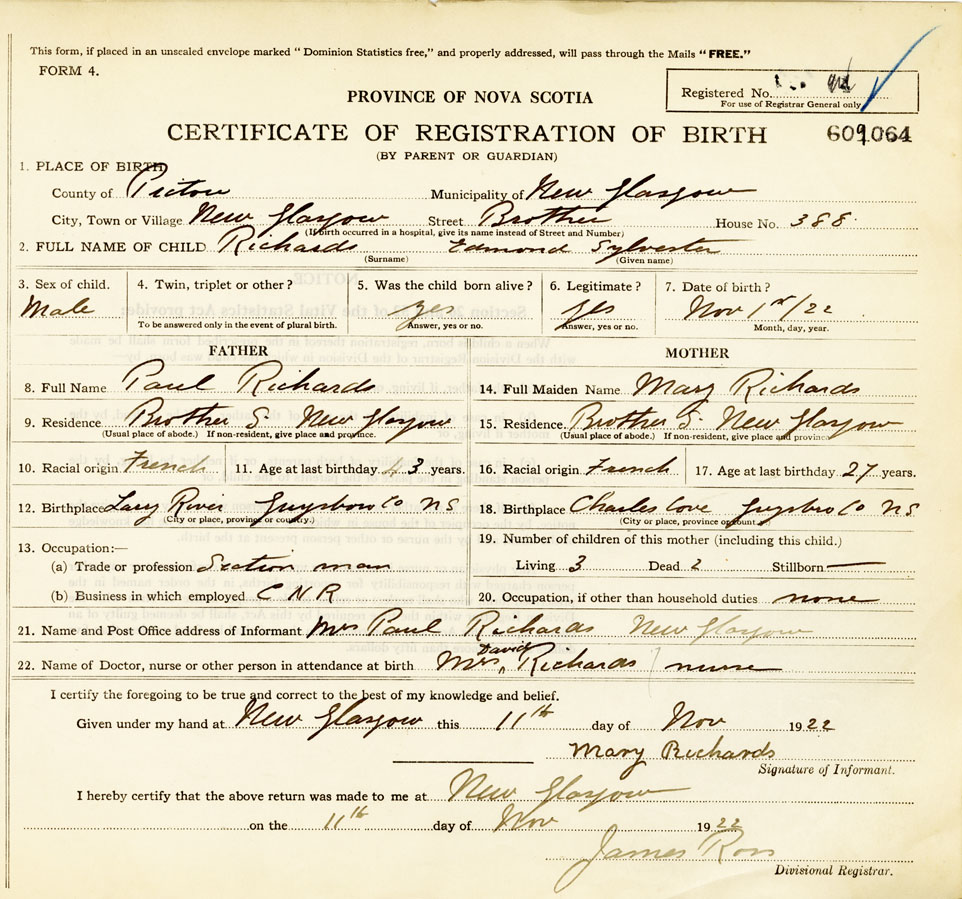 This form, if placed in an unsealed envelope marked "Dominion Statistics free," and properly addressed, will pass through the Mails "FREE."
FORM 4.
Registered No.
For use of Registrar General only
PROVINCE OF NOVA SCOTIA
CERTIFICATE OF REGISTRATION OF BIRTH 609064
(BY PARENT OR GUARDIAN)
1. PLACE OF BIRTH
County of Pictou Municipality of New Glasgow
City, Town or Village New Glasgow Street Brother House No. 388
(If birth occurred in a hospital, give its name instead of Street and Number)
2. FULL NAME OF CHILD Richards Edmond Sylvester
(Surname) (Given name)
3. Sex of child. 4. Twin, triplet or other? 5. Was the child born alive? 6. Legitimate? 7. Date of birth?
Male yes yes Nov 1st/22
To be answered only in the event of plural birth. Answer, yes or no. Answer, yes or no. Month, day, year.
FATHER MOTHER
8. Full Name Paul Richards 14. Full Maiden Name Mary Richards
9. Residence Brother S. New Glasgow 15. Residence Brother S. New Glasgow
(Usual place of abode.) If non-resident, give place and province. (Usual place of abode.) If non-resident, give place and province
10. Racial origin French 11. Age at last birthday 43 years. 16. Racial origin French 17. Age at last birthday 27 years.
12. Birthplace Larry River Guysboro Co NS 18. Birthplace Charles Cove Guysbro Co NS
(City or place, province or country.) (City or place, province or country.)
13. Occupation:— 19. Number of children of this mother (including this child.)
(a) Trade or profession Section man Living 3 Dead 2 Stillborn —
(b) Business in which employed C N R 20. Occupation, if other than household duties none
21. Name and Post Office address of Informant Mrs Paul Richards New Glasgow
22. Name of Doctor, nurse or other person in attendance at birth Mrs David Richards nurse
I certify the foregoing to be true and correct to the best of my knowledge and belief.
Given under my hand at New Glasgow this 11th day of Nov 1922
Mary Richards
Signature of Informant.
I hereby certify that the above return was made to me at New Glasgow
on the 11th day of Nov 1922
James Ross
Divisional Registrar.